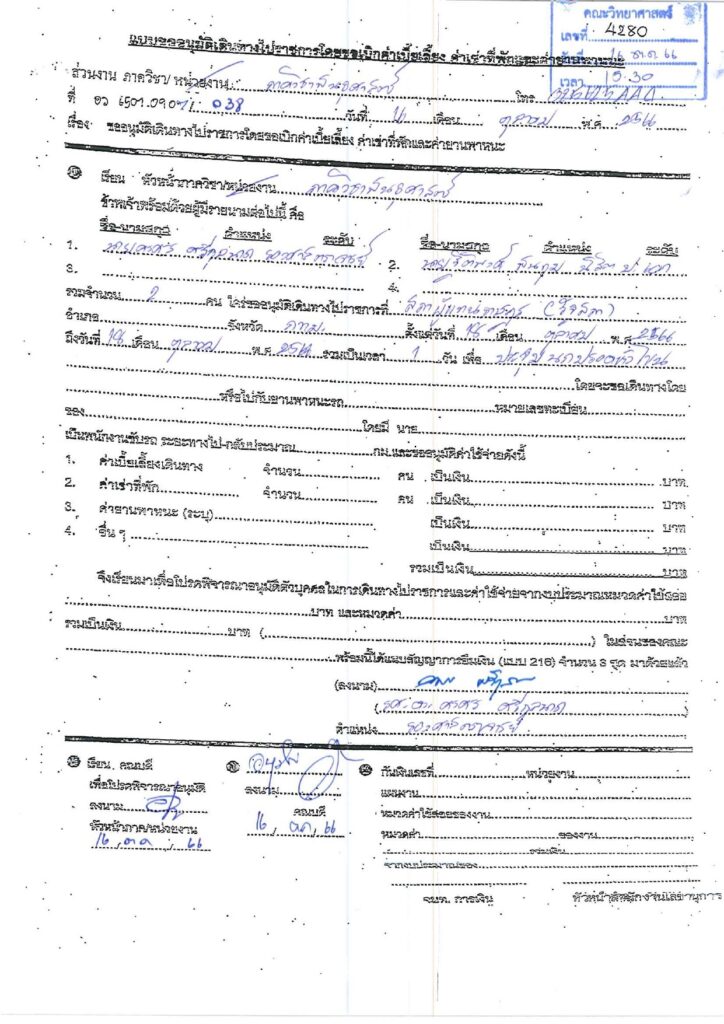 คณะวิทยาศาสตร์
เลขที่ 4280
วันที่ 16 ต.ค 66
เวลา 15.30
แบบขออนุมัติเดินทางไปราชการโดยขอเบิกค่าเบี้ยเลี้ยง ค่าเช่าที่พักและค่ายานพาหนะ
ส่วนงาน ภาควิชา/หน่วยงาน ภาควิชาพันธุศาสตร์ โทร.
ที่ อว 6501.0907/ 038 วันที่ เดือน ตุลาคม พ.ศ. 2566
เรื่อง ขออนุมัติเดินทางไปราชการโดยขอเบิกค่าเบี้ยเลี้ยง ค่าเช่าที่พักและค่ายานพาหนะ
เรียน หัวหน้าภาควิชา/หน่วยงาน ภาควิชาพันธุศาสตร์
ข้าพเจ้าพร้อมด้วยผู้มีรายนามต่อไปนี้ คือ
ชื่อ-นามสกุล ตำแหน่ง ระดับ ชื่อ-นามสกุล ตำแหน่ง ระดับ
1. รองศาสตราจารย์ 2. นิสิต ป.เอก
3. 4.
รวมจำนวน 2 คน ใคร่ขออนุมัติเดินทางไปราชการที่ สภาผู้แทนราษฎร (รัฐสภา)
อำเภอ จังหวัด กทม. ตั้งแต่วันที่ 18 เดือน ตุลาคม พ.ศ. 2566
ถึงวันที่ 18 เดือน ตุลาคม พ.ศ. 2566 รวมเป็นเวลา 1 วัน เพื่อ ประชุม
โดยจะขอเดินทางโดย
หรือไปกับยานพาหนะรถ หมายเลขทะเบียน
ของ โดยมี นาย
เป็นพนักงานขับรถ ระยะทางไป-กลับประมาณ กม.และขออนุมัติค่าใช้จ่ายดังนี้
1. ค่าเบี้ยเลี้ยงเดินทาง จำนวน คน เป็นเงิน บาท
2. ค่าเช่าที่พัก จำนวน คน เป็นเงิน บาท
3. ค่ายานพาหนะ (ระบุ) เป็นเงิน บาท
4. อื่น ๆ เป็นเงิน บาท
รวมเป็นเงิน บาท
จึงเรียนมาเพื่อโปรดพิจารณาอนุมัติตัวบุคคลในการเดินทางไปราชการและค่าใช้จ่ายจากงบประมาณหมวดค่าใช้สอย
บาท และหมวดค่า บาท
รวมเป็นเงิน บาท ( ) ในส่วนของคณะ
พร้อมนี้ได้แนบสัญญาการยืมเงิน (แบบ 216) จำนวน 3 ชุด มาด้วยแล้ว
(ลงนาม)
( )
ตำแหน่ง รองศาสตราจารย์
เรียน คณบดี
เพื่อโปรดพิจารณาอนุมัติ
ลงนาม
หัวหน้าภาค/หน่วยงาน
16 , ต.ค , 66
อนุมัติ
ลงนาม
คณบดี
16 , ต.ค , 66
กันเงินเลขที่ หน่วยงาน
แผนงาน
หมวดค่าใช้สอยของงาน
หมวดค่า ของงาน
รวมเงิน
จากงบประมาณของ
จนท. การเงิน หัวหน้าสำนักงานเลขานุการ